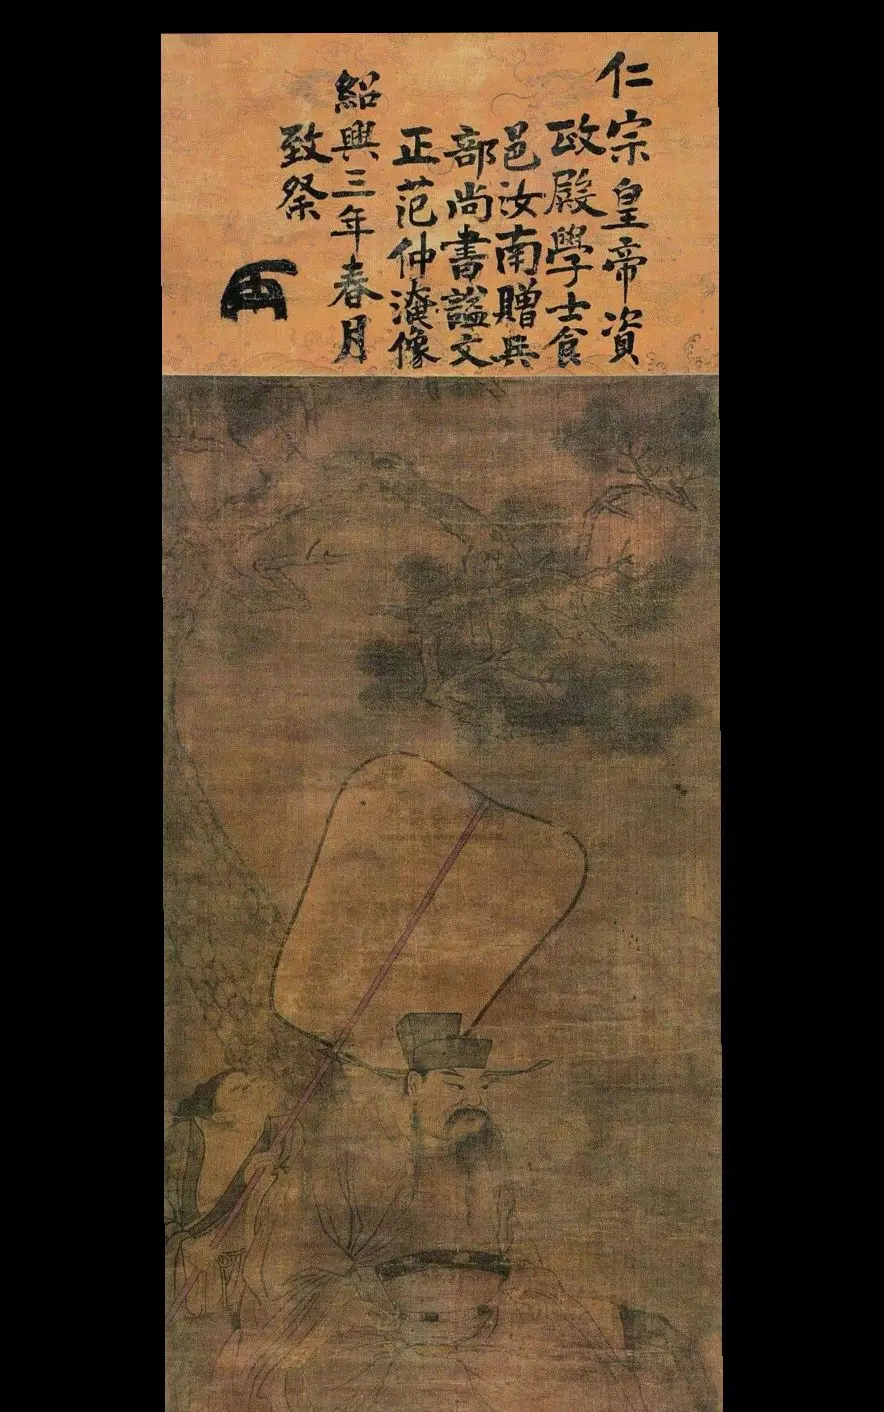 仁宗皇帝資
政殿學士食
邑汝南贈兵
部尚書謚文
正范仲淹像
紹興三年春月
致祭